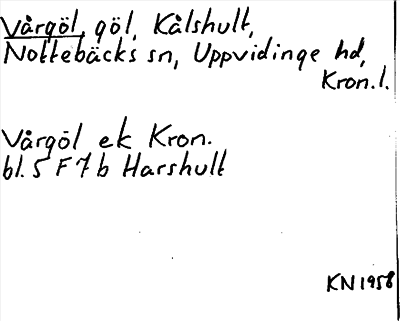 Vårgöl, göl, Kålshult,
Nottebäcks sn, Uppvidinge hd,
Kron.l.
Vårgöl ek Kron.
bl. 5 F 7 b Harshult
KN 1958